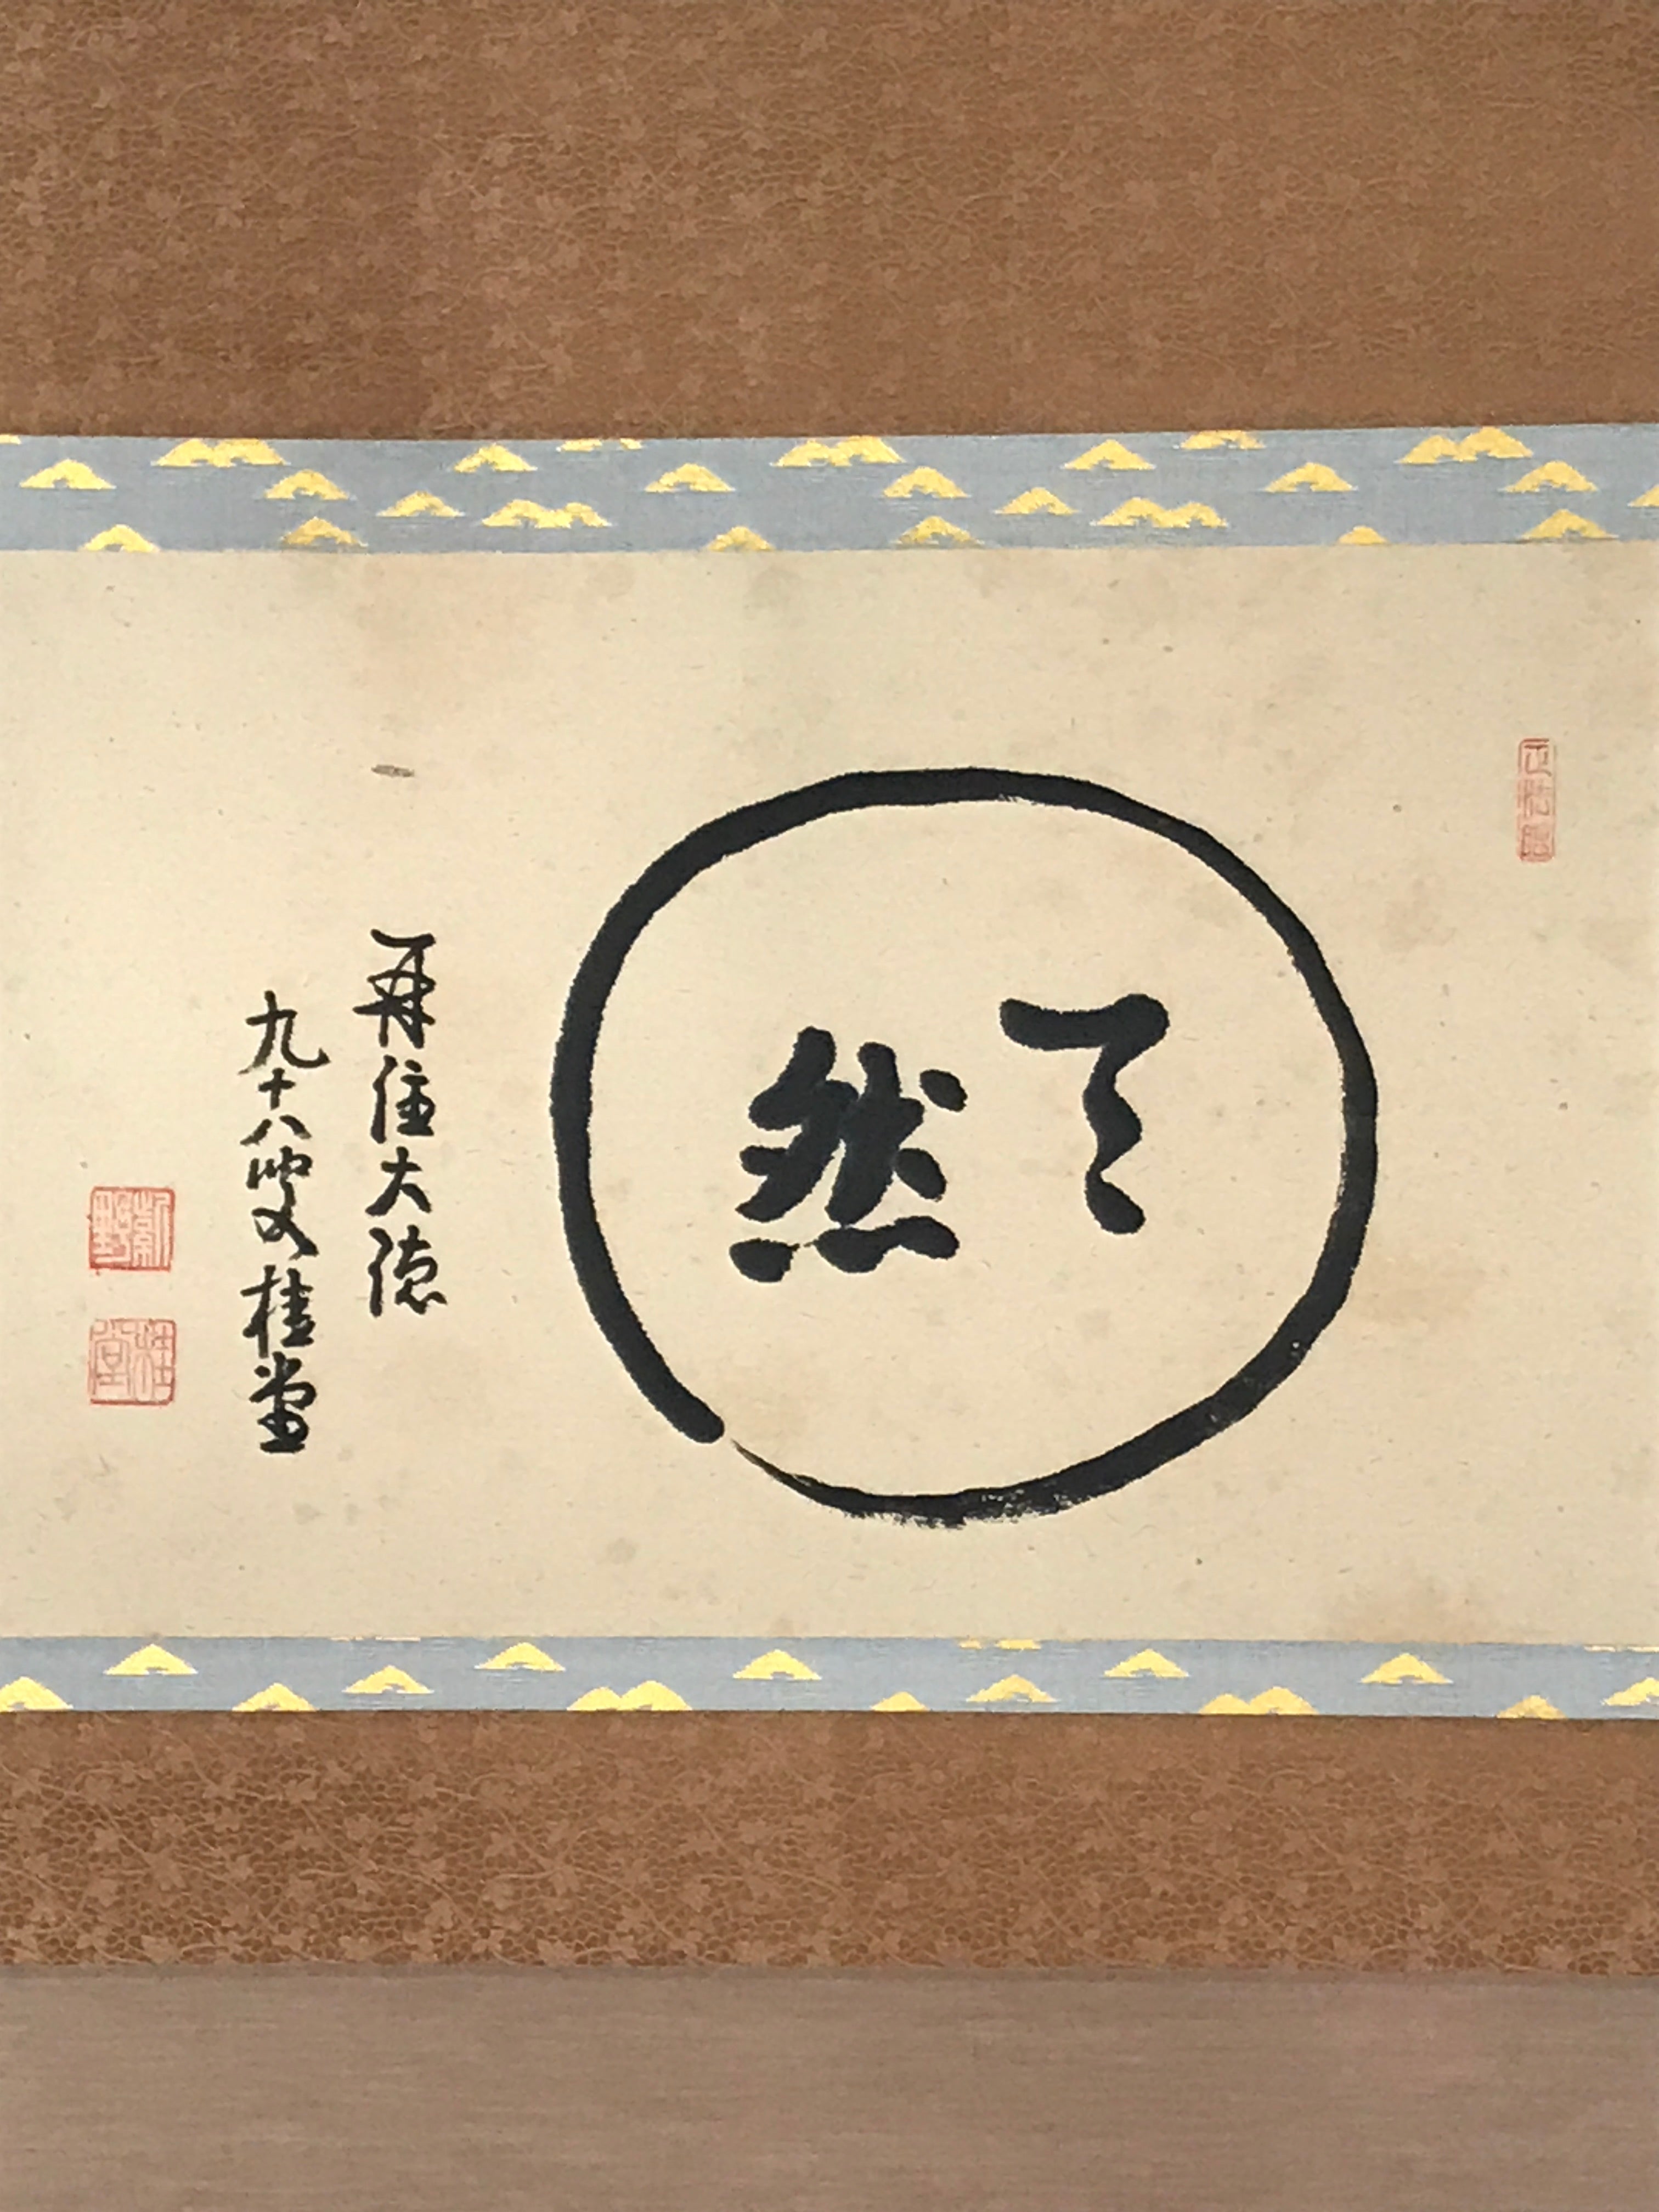 了
然
再住大徳
九十八叟桂堂
桂堂